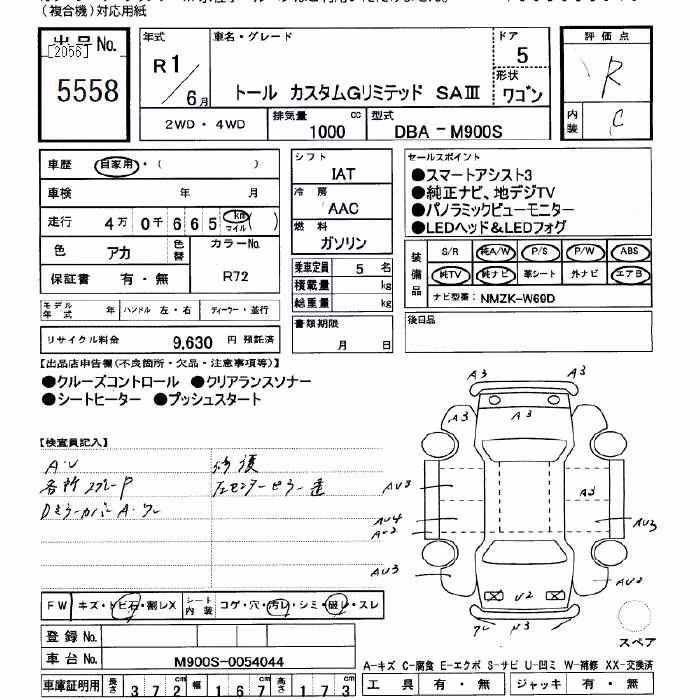 （複合機）対応用紙
出品No.
[2056]
5558
年式
R1/6月
車名・グレード
トール カスタムGリミテッド SAⅢ
ドア
5
形状
ワゴン
評価点
R
内装
C
2WD・4WD
排気量
1000
cc
型式
DBA－M900S
車歴
自家用・（　）
車検
年
月
走行
4万 0千 6 6 5 km
マイル（　）
色
アカ
色替
カラーNo.
R72
保証書
有・無
モデル年式
年
ハンドル
左・右
ディーラー・並行
リサイクル料金
9,630
円
預託済
シフト
IAT
冷房
AAC
燃料
ガソリン
乗車定員
5
名
積載量
kg
総重量
kg
書類期限
月
日
セールスポイント
●スマートアシスト3
●純正ナビ、地デジTV
●パノラミックビューモニター
●LEDヘッド&LEDフォグ
装備品
S/R
純A/W
P/S
P/W
ABS
純TV
純ナビ
革シート
外ナビ
エアB
ナビ型番:
NMZK-W69D
後日品
【出品店申告欄(不良箇所・欠品・注意事項等)】
●クルーズコントロール ●クリアランスソナー
●シートヒーター ●プッシュスタート
【検査員記入】
A・U
修復
各所
Dミラーカバー A・ワレ
A3
A3
A3
A3
A3
A3
AU3
AU4
AU2
AU3
AU3
AU2
U2
FW
キズ・トビ石・割レX
シート内装
コゲ・穴・汚レ・シミ・破レ・スレ
スペア
登録No.
車台No.
M900S-0054044
A－キズ C－腐食 E－エクボ S－サビ U－凹ミ W－補修 XX－交換済
車庫証明用
長さ
372
幅
167
高さ
173
工具
有・無
ジャッキ
有・無